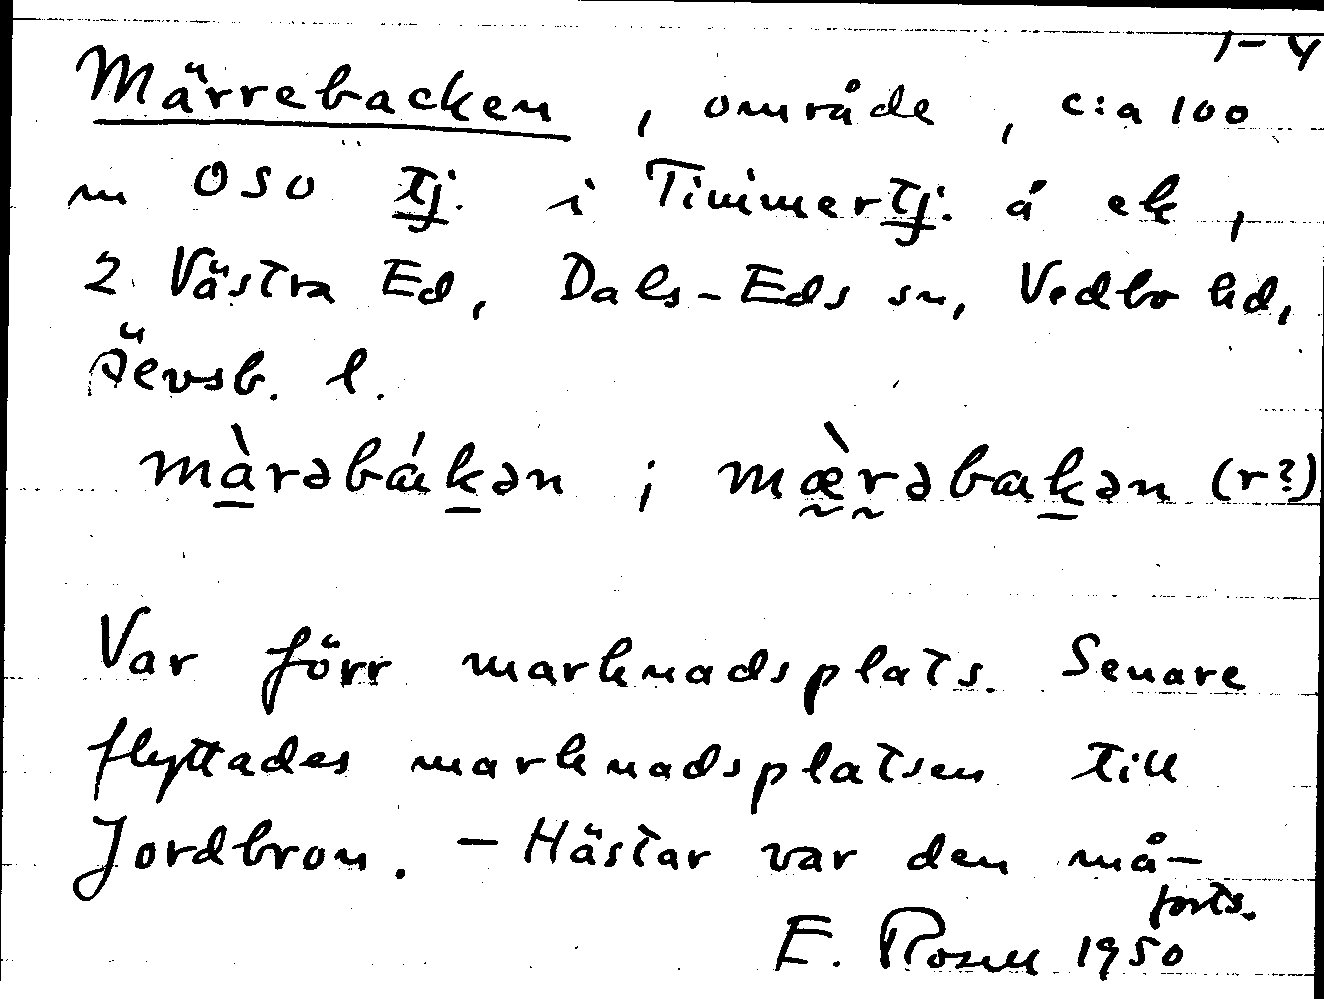 1-4
Märrebacken, område, c:a 100
m OSO tj. i Timmertj. å ek,
2 Västra Ed, Dals-Eds sn, Vedbo hd,
Älvsb. l.
màrəbákən ; mæ̀rəbakən (r?)
Var förr marknadsplats. Senare
flyttades marknadsplatsen till
Jordbron. – Hästar var den må-
forts.
E. Rosell 1950